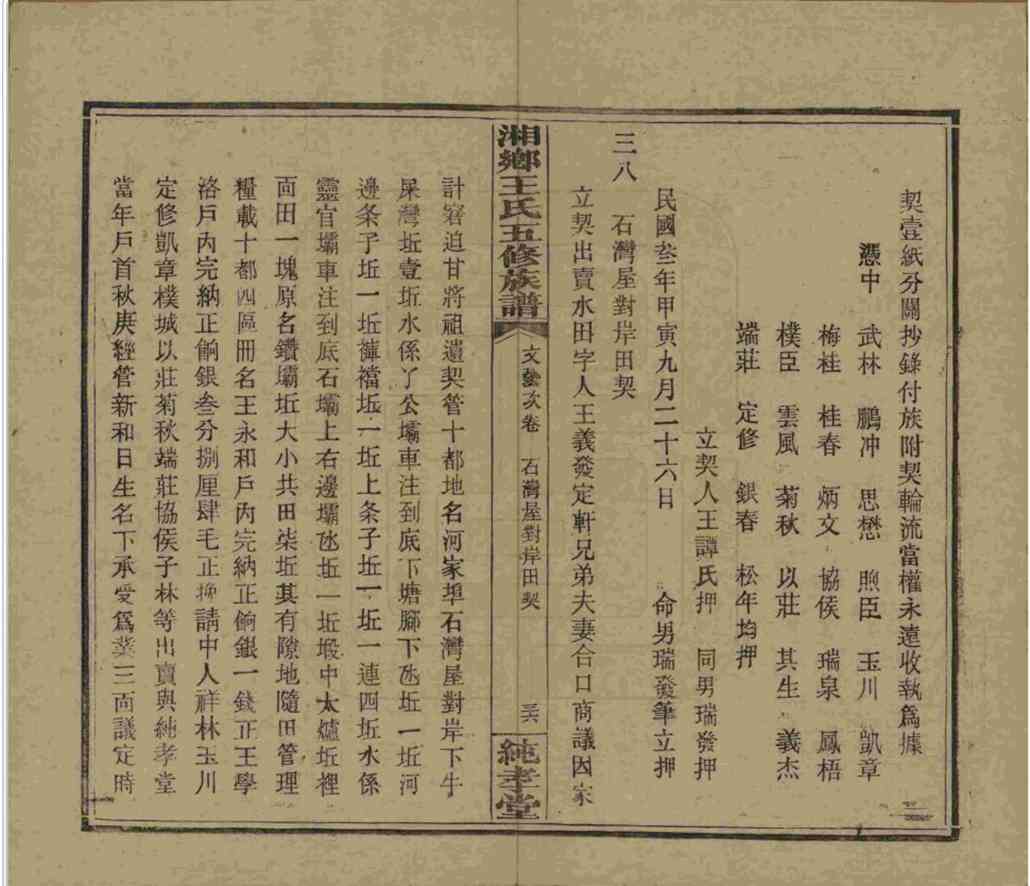 契壹紙分關抄錄付族附契輪流當權永遠收執爲據
憑中 武林 鵬冲 思懋 煦臣 玉川 凱章
梅桂 桂春 炳文 協侯 瑞泉 鳳梧
樸臣 雲風 菊秋 以莊 其生 義杰
端莊 定修 銀春 松年均押
立契人王譚氏押 同男瑞發押
民國叁年甲寅九月二十六日 命男瑞發筆立押
三八 石灣屋對岸田契
立契出賣水田字人王義發定軒兄弟夫妻合口商議因家
湘鄉王氏五修族譜
文叄次卷 石灣屋對岸田契
三六
純孝堂
計窘迫甘將祖遺契管十都地名河家埠石灣屋對岸下牛
屎灣坵壹坵水係了公壩車注到底下塘腳下氹坵一坵河
邊条子坵一坵褲襠坵一坵上条子坵一坵一連四坵水係
靈官壩車注到底石壩上右邊壩氹坵一坵塅中太爐坵裡
面田一塊原名鑽壩坵大小共田柒坵其有隙地隨田管理
糧載十都四區冊名王永和戶內完納正餉銀一錢正王學
洛戶內完納正餉銀叁分捌厘肆毛正挽請中人祥林玉川
定修凱章樸城以莊菊秋端莊協侯子林等出賣與純孝堂
當年戶首秋庚經管新和日生名下承受爲業三面議定時